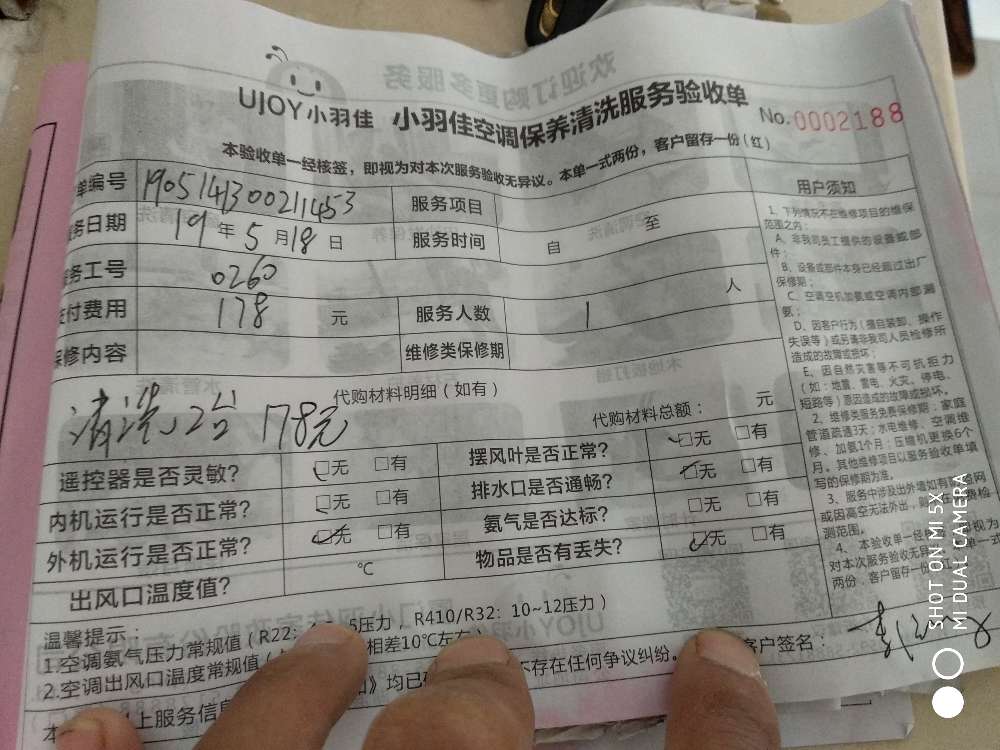 欢迎订购更多服务
UJOY小羽佳 小羽佳空调保养清洗服务验收单
No.0002188
本验收单一经核签，即视为对本次服务验收无异议。本单一式两份，客户留存一份（红）
单编号 190514130021453 服务项目
务日期 19年5月18日 服务时间 自 至
务工号 0260
付费用 178 元 服务人数 1 人
保修内容 维修类保修期
代购材料明细（如有）
清洗2台 178元
代购材料总额： 元
遥控器是否灵敏? □无 □有 摆风叶是否正常? □无 □有
内机运行是否正常? □无 □有 排水口是否通畅? □无 □有
外机运行是否正常? □无 □有 氨气是否达标? □无 □有
出风口温度值? ℃ 物品是否有丢失? □无 □有
温馨提示：
1.空调氨气压力常规值（R22： 5压力，R410/R32：10~12压力）
2.空调出风口温度常规值（ 相差10℃左右
本 上服务信息 》均已 不存在任何争议纠纷。
客户签名：
用户须知
1、下列情况不在维修项目的维保
范围之内：
A、非我司员工提供的设备或部
件；
B、设备或部件本身已经超过出厂
保修期；
C、空调空机加氨或空调内部漏
氨；
D、因客户行为（擅自装卸、操作
失误等）或另请非我司人员检修所
造成的故障或损坏；
E、因自然灾害等不可抗拒力
（如：地震、雷电、火灾、停电、
短路等）原因造成的故障或损坏。
2、维修类服务免费保修期：家庭
管道疏通3天；水电维修、空调维
修、加氨1个月；压缩机更换6个
月。其他维修项目以服务验收单填
写的保修期为准。
3、服务中涉及出外墙如有防盗网
或因高空无法外出，
测范围。
4、本验收单一经 即视为
对本次服务验收无异 单一式
两份，客户留存一份
SHOT ON MI 5X
MI DUAL CAMERA